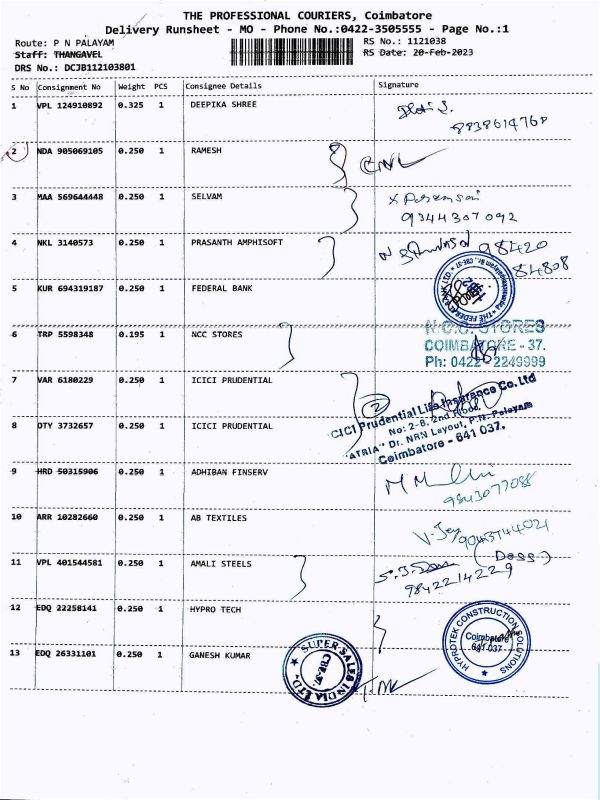 THE PROFESSIONAL COURIERS, Coimbatore
Delivery Runsheet - MO - Phone No.:0422-3505555 - Page No.:1
Route: P N PALAYAM
RS No.: 1121038
Staff: THANGAVEL
RS Date: 20-Feb-2023
DRS No.: DCJB112103801
S No Consignment No Weight PCS Consignee Details Signature
1 VPL 124910892 0.325 1 DEEPIKA SHREE
8838614768
2 NDA 905069105 0.250 1 RAMESH
3 MAA 569644448 0.250 1 SELVAM
9344307092
4 NKL 3140573 0.250 1 PRASANTH AMPHISOFT
98420
84808
5 KUR 694319187 0.250 1 FEDERAL BANK
THE FEDERAL BANK LTD.
6 TRP 5598348 0.195 1 NCC STORES
N.C.C. STORES
COIMBATORE - 37.
Ph: 0422 - 2249999
7 VAR 6180229 0.250 1 ICICI PRUDENTIAL
2
ICICI Prudential Life Insurance Co. Ltd
No: 2-B, 2nd Floor,
"ATRIA" Dr. NRN Layout, P.N. Palayam
Coimbatore - 641 037.
8 DTY 3732657 0.250 1 ICICI PRUDENTIAL
9 HRD 50315906 0.250 1 ADHIBAN FINSERV
9843077088
10 ARR 10282660 0.250 1 AB TEXTILES
9043744021
11 VPL 401544581 0.250 1 AMALI STEELS
9842214229
12 EDQ 22258141 0.250 1 HYPRO TECH
HYPROTEK CONSTRUCTION SOLUTIONS
Coimbatore
641 037
13 EDQ 26331101 0.250 1 GANESH KUMAR
SUPER SALES INDIA LTD.
CBE-37.